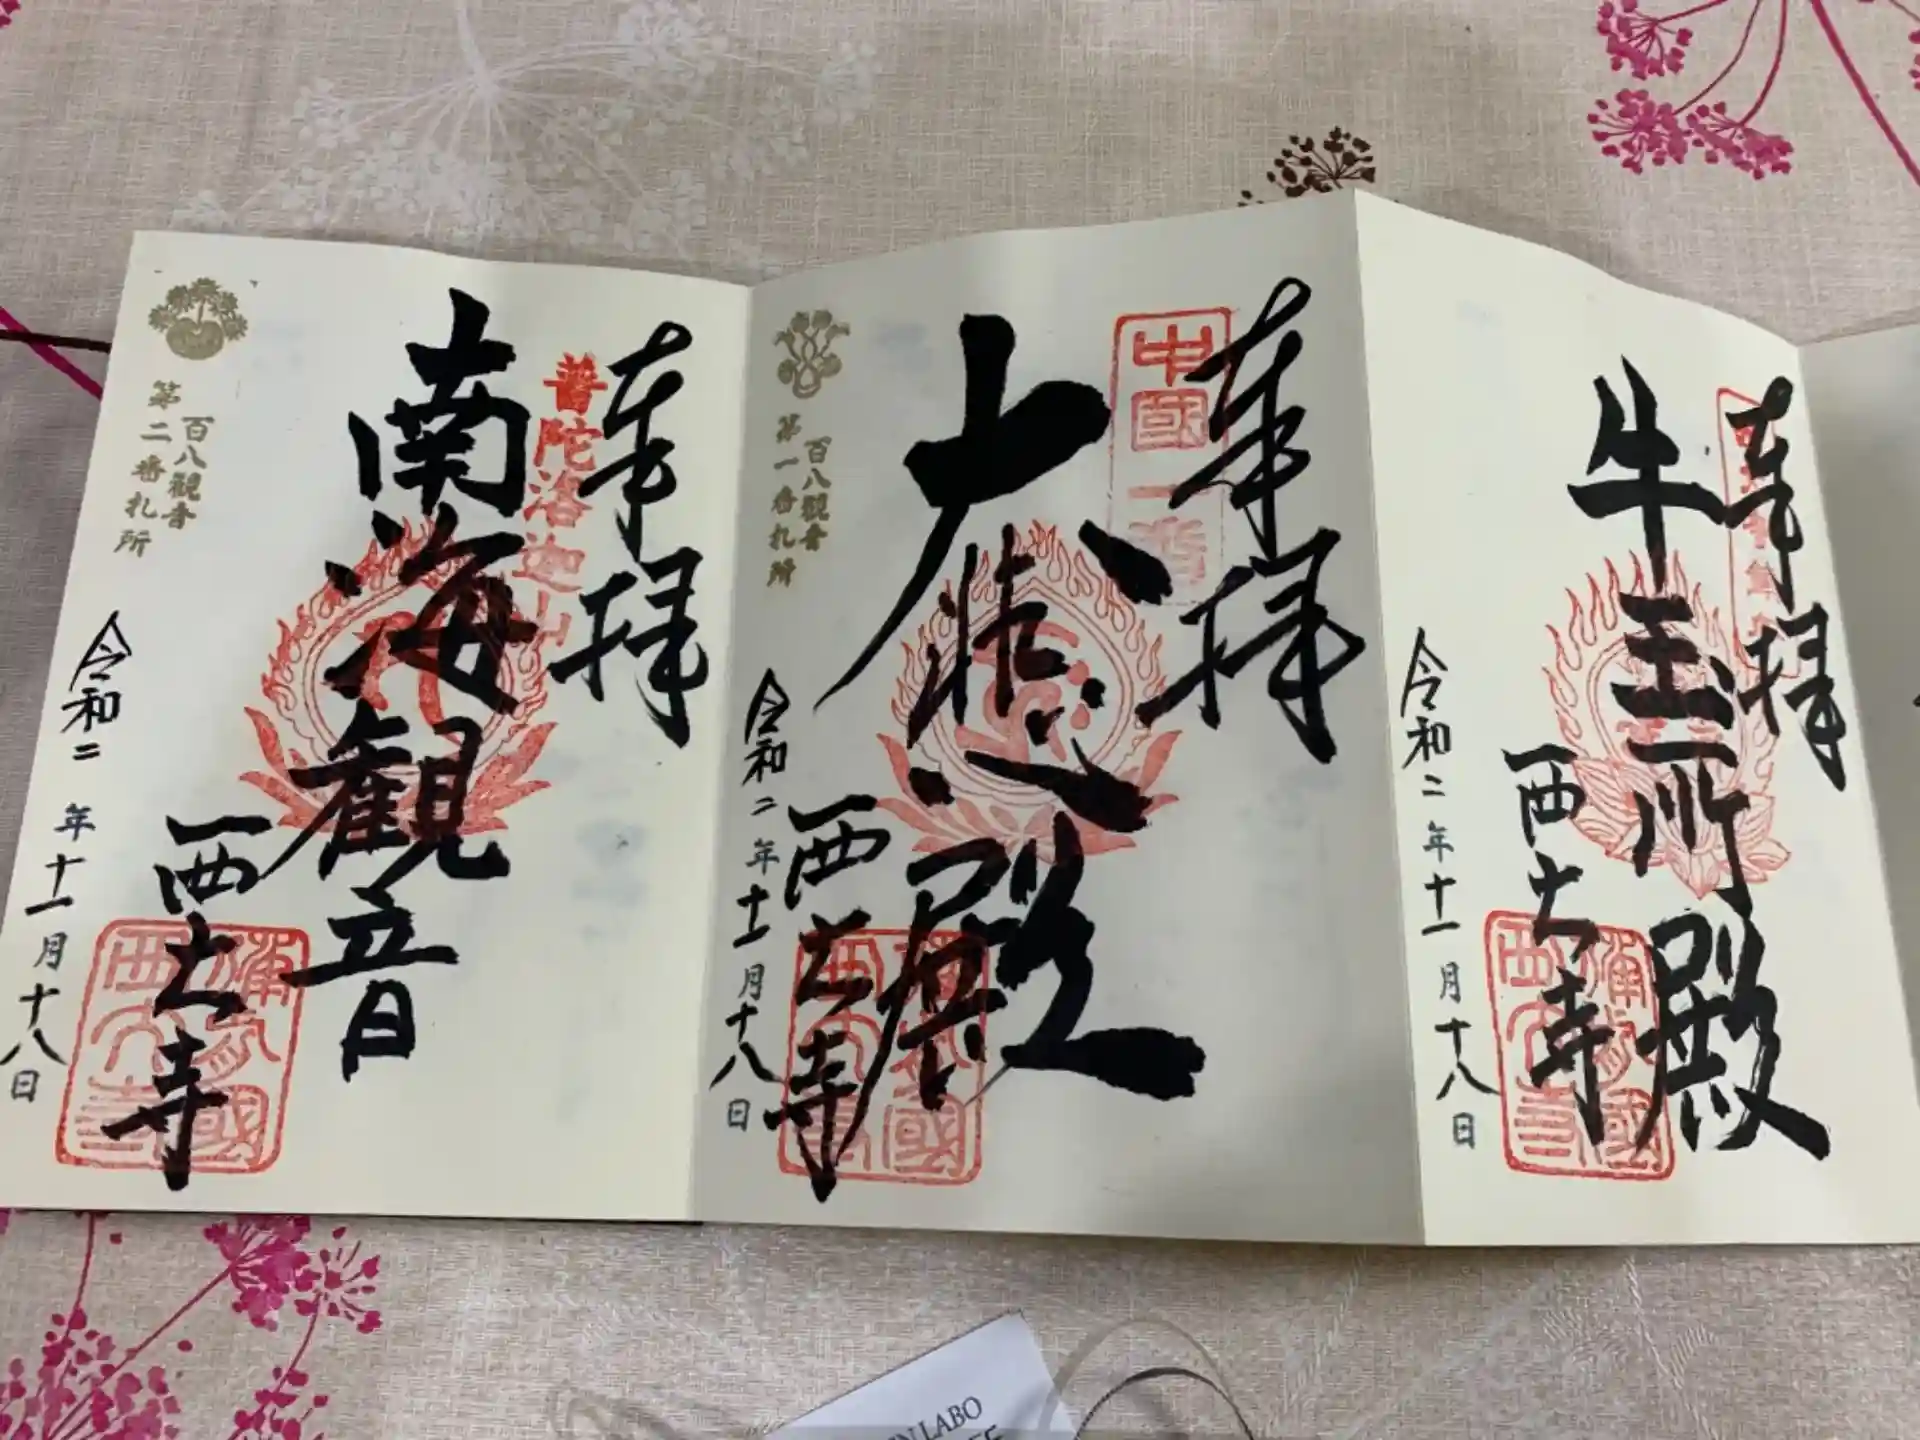 奉拝
牛玉所殿
西大寺
令和二年十一月十八日
奉拝
中國一番
大悲殿
百八観音
第一番札所
西大寺
令和二年十一月十八日
奉拝
普陀洛迦山
南海観音
百八観音
第二番札所
西大寺
令和二年十一月十八日
IN LABO